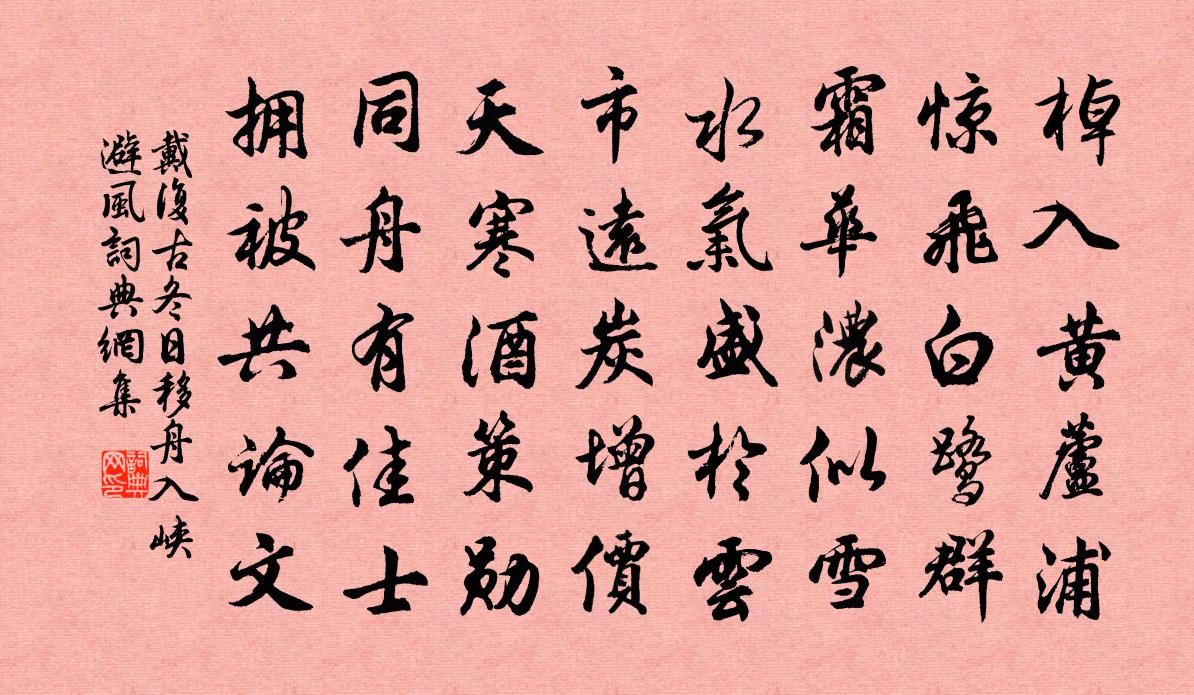 棹入黄蘆浦
惊飛白鷺群
霜華濃似雪
水氣盛於雲
市遠炭增價
天寒酒策勛
同舟有佳士
拥被共論文
戴復古冬日移舟入峽
避風詞典網集
詞典网印